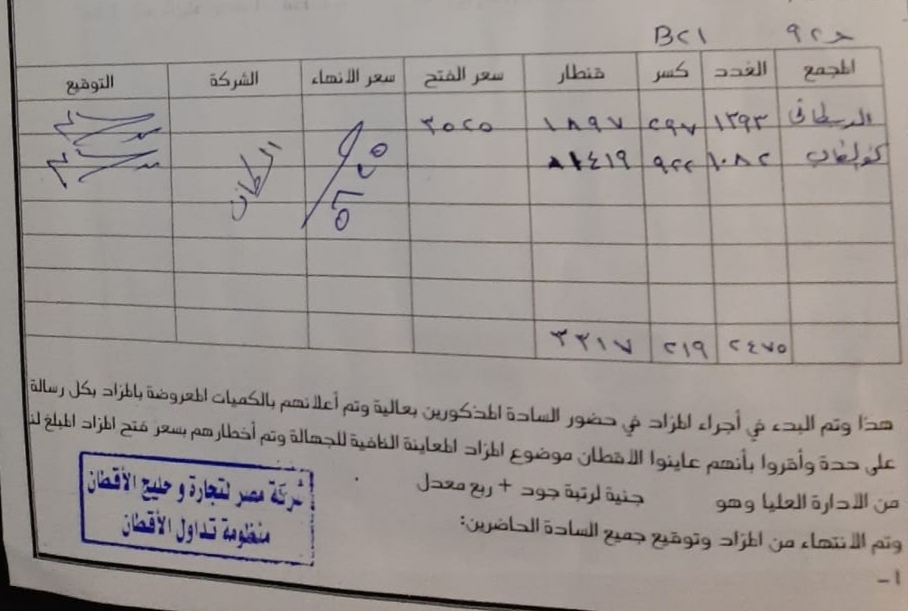 ٩٢٨ B٢١
المجمع العدد كسر قنطار سعر الفتح سعر الأنهاء الشركة التوقيع
١٣٩٣ ٢٩٧ ١٨٩٧ ٢٥٢٥
١٠٨٢ ٩٢٢ ١٤١٩
٢٤٧٥ ٢١٩ ٣٣١٧
هذا وتم البدء في أجراء المزاد في حضور السادة المذكورين بعالية وتم أعلانهم بالكميات المعروضة بالمزاد بكل رسالة
على حدة وأقروا بأنهم عاينوا الاقطان موضوع المزاد المعاينة النافية للجهالة وتم أخطارهم بسعر فتح المزاد المبلغ لنا
من الادارة العليا وهو جنية لرتبة جود + ربع معدل
وتم الانتهاء من المزاد وتوقيع جميع السادة الحاضرين:
١-
شركة مصر لتجارة و حليج الأقطان
منظومة تداول الأقطان